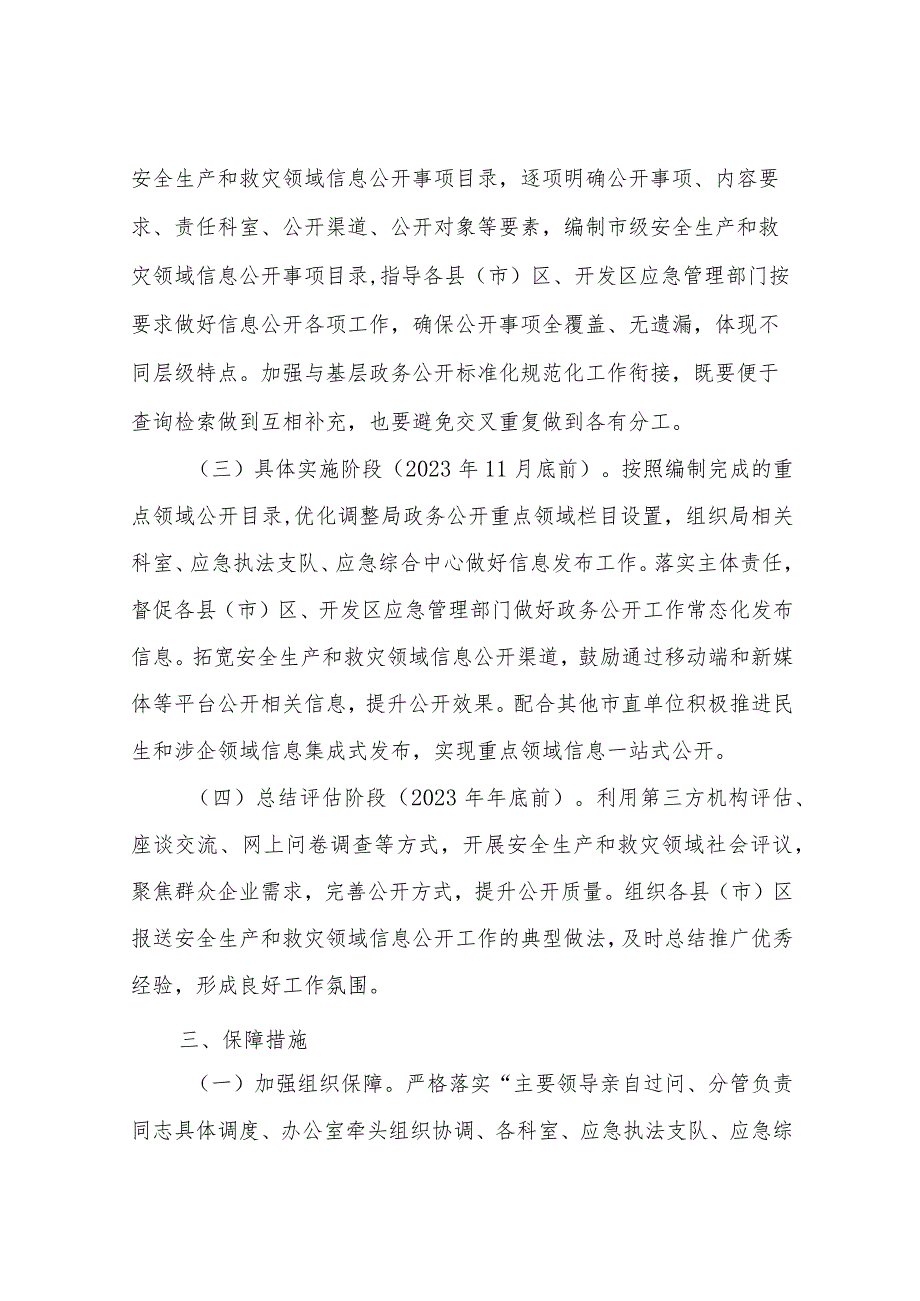 安全生产和救灾领域信息公开事项目录，逐项明确公开事项、内容要
求、责任科室、公开渠道、公开对象等要素，编制市级安全生产和救
灾领域信息公开事项目录,指导各县（市）区、开发区应急管理部门按
要求做好信息公开各项工作，确保公开事项全覆盖、无遗漏，体现不
同层级特点。加强与基层政务公开标准化规范化工作衔接，既要便于
查询检索做到互相补充，也要避免交叉重复做到各有分工。
（三）具体实施阶段（2023 年 11 月底前）。按照编制完成的重
点领域公开目录,优化调整局政务公开重点领域栏目设置，组织局相关
科室、应急执法支队、应急综合中心做好信息发布工作。落实主体责任，
督促各县（市）区、开发区应急管理部门做好政务公开工作常态化发布
信息。拓宽安全生产和救灾领域信息公开渠道，鼓励通过移动端和新媒
体等平台公开相关信息，提升公开效果。配合其他市直单位积极推进民
生和涉企领域信息集成式发布，实现重点领域信息一站式公开。
（四）总结评估阶段（2023 年年底前）。利用第三方机构评估、
座谈交流、网上问卷调查等方式，开展安全生产和救灾领域社会评议，
聚焦群众企业需求，完善公开方式，提升公开质量。组织各县（市）区
报送安全生产和救灾领域信息公开工作的典型做法，及时总结推广优秀
经验，形成良好工作氛围。
三、保障措施
（一）加强组织保障。严格落实“主要领导亲自过问、分管负责
同志具体调度、办公室牵头组织协调、各科室、应急执法支队、应急综